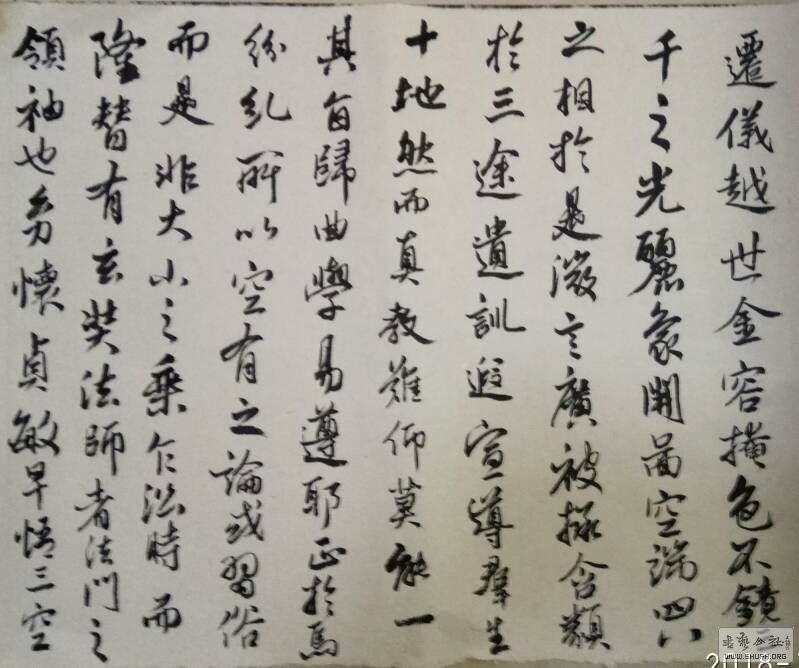 遷儀越世金容掩色不鏡三
千之光麗象開啚空端四八
之相於是微言廣被拯含類
於三途遺訓遐宣導羣生
十地然而真教難仰莫能一
其旨歸曲學易遵耶正於焉
紛糺所以空有之論或習俗
而是非大小之乘乍沿時而
隆替有玄奘法師者法門之
領袖也幼懷貞敏早悟三空
WWW.SHUFA.ORG